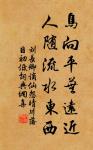 鳥向平蕪遠近
人隨流水東西
劉長卿謫仙怨晴川落
日初低詞典圖集